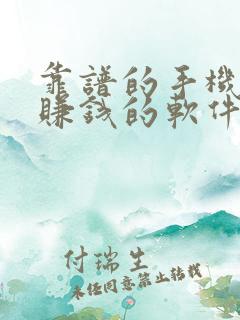 靠譜的手機
賺錢的軟件
付瑞生
未經同意禁止轉載